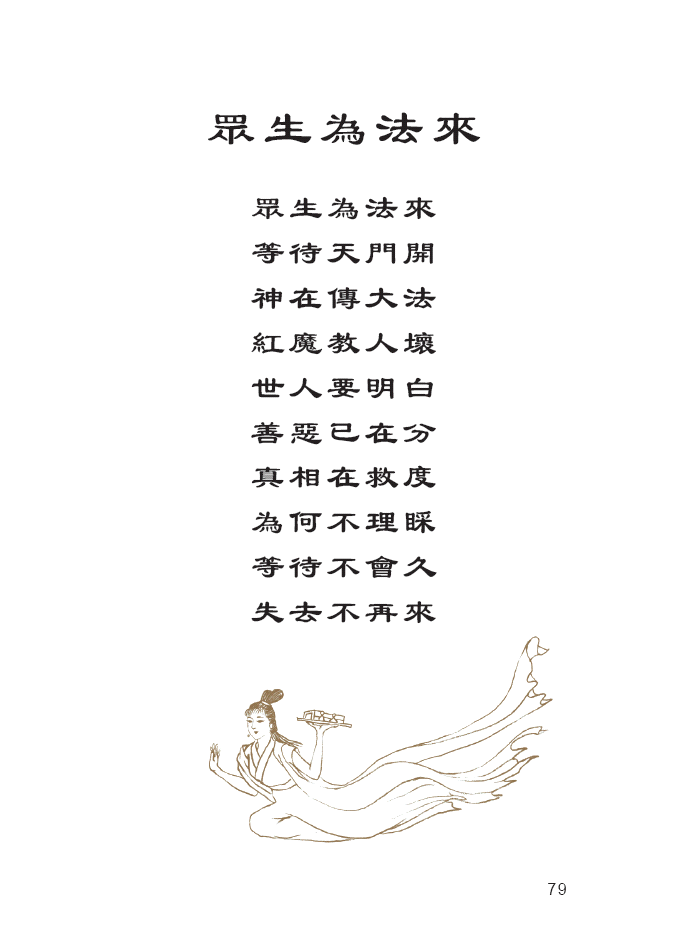 眾生為法來
眾生為法來
等待天門開
神在傳大法
紅魔教人壞
世人要明白
善惡已在分
真相在救度
為何不理睬
等待不會久
失去不再來
79